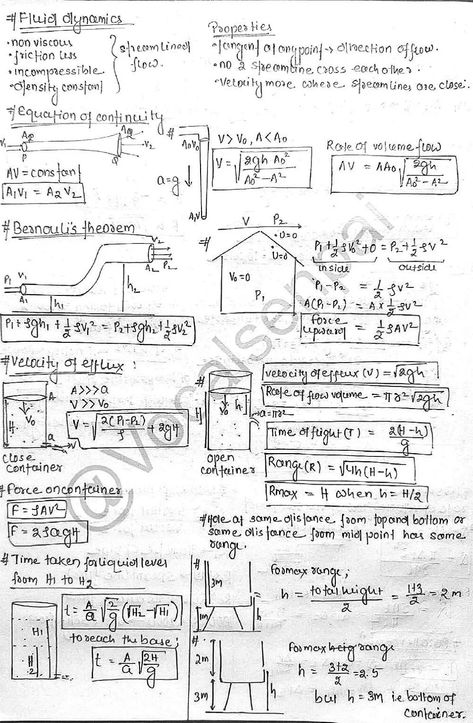 # Fluid dynamics
• non viscous
• friction less
• incompressible
• density constant
} streamlined flow.
Properties
• tangent at any point → direction of flow.
• no 2 streamline cross each other.
• velocity more where streamlines are close.
# Equation of continuity
A₁ V₁ P
A₂ V₂ Q
AV = constant
A₁V₁ = A₂V₂
#
A₀V₀
a=g
A,V
V > V₀, A < A₀
V = √(2gh A₀² / (A₀² - A²))
Rate of volume flow
AV = AA₀ √(2gh / (A₀² - A²))
# Bernouli's theorem
P₁ V₁ A₁ h₁
V₂ P₂ A₂ h₂
P₁ + ρgh₁ + ½ρv₁² = P₂ + ρgh₂ + ½ρv₂²
V P₂
U=0
U=0
V₀=0
P₁
P₁ + ½ρV₀² + 0 = P₂ + ½ρV²
inside outside
P₁ - P₂ = ½ρV²
A(P₁-P₂) = A × ½ρV²
force upward = ½ρAV²
# Velocity of efflux :
A
H
V₀
a
V
close container
A >>> a
V >> V₀
V = √(2(P₁-P₂)/ρ + 2gH)
#
H
V₀
h
a = πr²
open container
velocity of efflux (V) = √2gh
Rate of flow volume = πr²√2gh
Time of flight (T) = √(2(H-h)/g)
Range (R) = √4h(H-h)
Rmax = H when h = H/2
# Force on container
F = ρAV²
F = 2ρagH
# Hole at same distance from top and bottom or
same distance from mid point has same
range.
# Time taken for liquid level
from H₁ to H₂
H₁
H₂
t = A/a √(2/g) (√H₂ - √H₁)
to reach the base;
t = A/a √(2H/g)
#
3m
1m
h
For max range;
h = total height / 2 = (1+3)/2 = 2m
#
2m
3m
h
For max range
h = (3+2)/2 = 2.5
but h = 3m i.e bottom of
container
@Vocalsensai